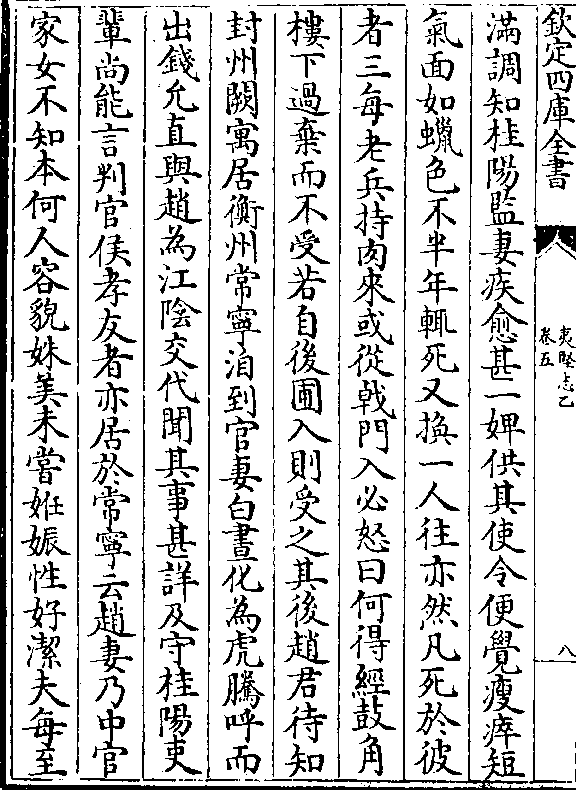 欽定四庫全書
夷堅志乙
卷五
八
滿調知桂陽監妻疾愈甚一婢供其使令便覺瘦瘁短
氣面如蠟色不半年輒死又換一人往亦然凡死於彼
者三每老兵持肉來或從戟門入必怒曰何得經鼓角
樓下過棄而不受若自後圃入則受之其後趙君待知
封州闕寓居衡州常寧洎到官妻白晝化為虎騰呼而
出錢允直與趙為江陰交代聞其事甚詳及守桂陽吏
輩尚能言判官侯孝友者亦居於常寧云趙妻乃中官
家女不知本何人容貌姝美未嘗姙娠性好潔夫每至